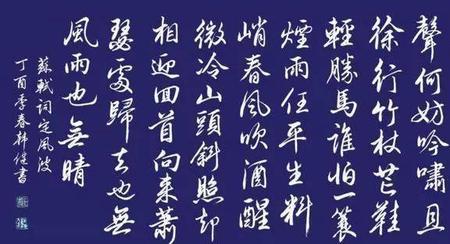 聲何妨吟嘯且
徐行竹杖芒鞋
輕勝馬誰怕一蓑
煙雨任平生料
峭春风吹酒醒
微冷山頭斜照却
相迎回首向來蕭
瑟處歸去也無
風雨也無晴
蘇軾詞定風波
丁酉季春韩書